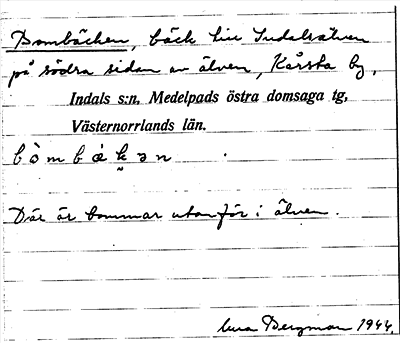 Bombäcken, bäck till Indalsälven
på södra sidan av älven, Kårsta by,
Indals s:n. Medelpads östra domsaga tg,
Västernorrlands län.
bòmbäkən
Där är bommar utanför i älven.
Bergman 1944.